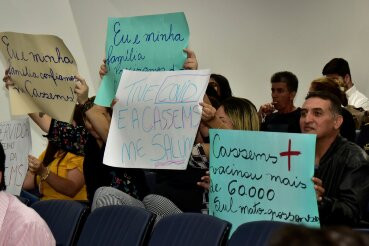 Eu e minha
família confiamos
em a Cassems
Eu e minha
família
TIVE COVID
E A CASSEMS
ME SALVOU
Cassems +
vacinou mais
de 60.000
Sul mato grossenses